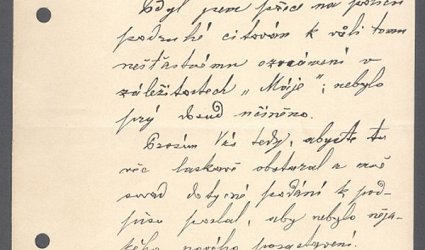 Když jsem přece na policii
podruhé citován k vůli tomu
nešťastnému oznámení v
záležitostech „Máje"; nebylo
prý dosud učiněno.
Prosím Vás tedy, abyste tu
věc laskavě obstaral a mně
snad dotyčné podání k pod-
pisu poslal, aby nebylo něja-
kého nového pozastavení.